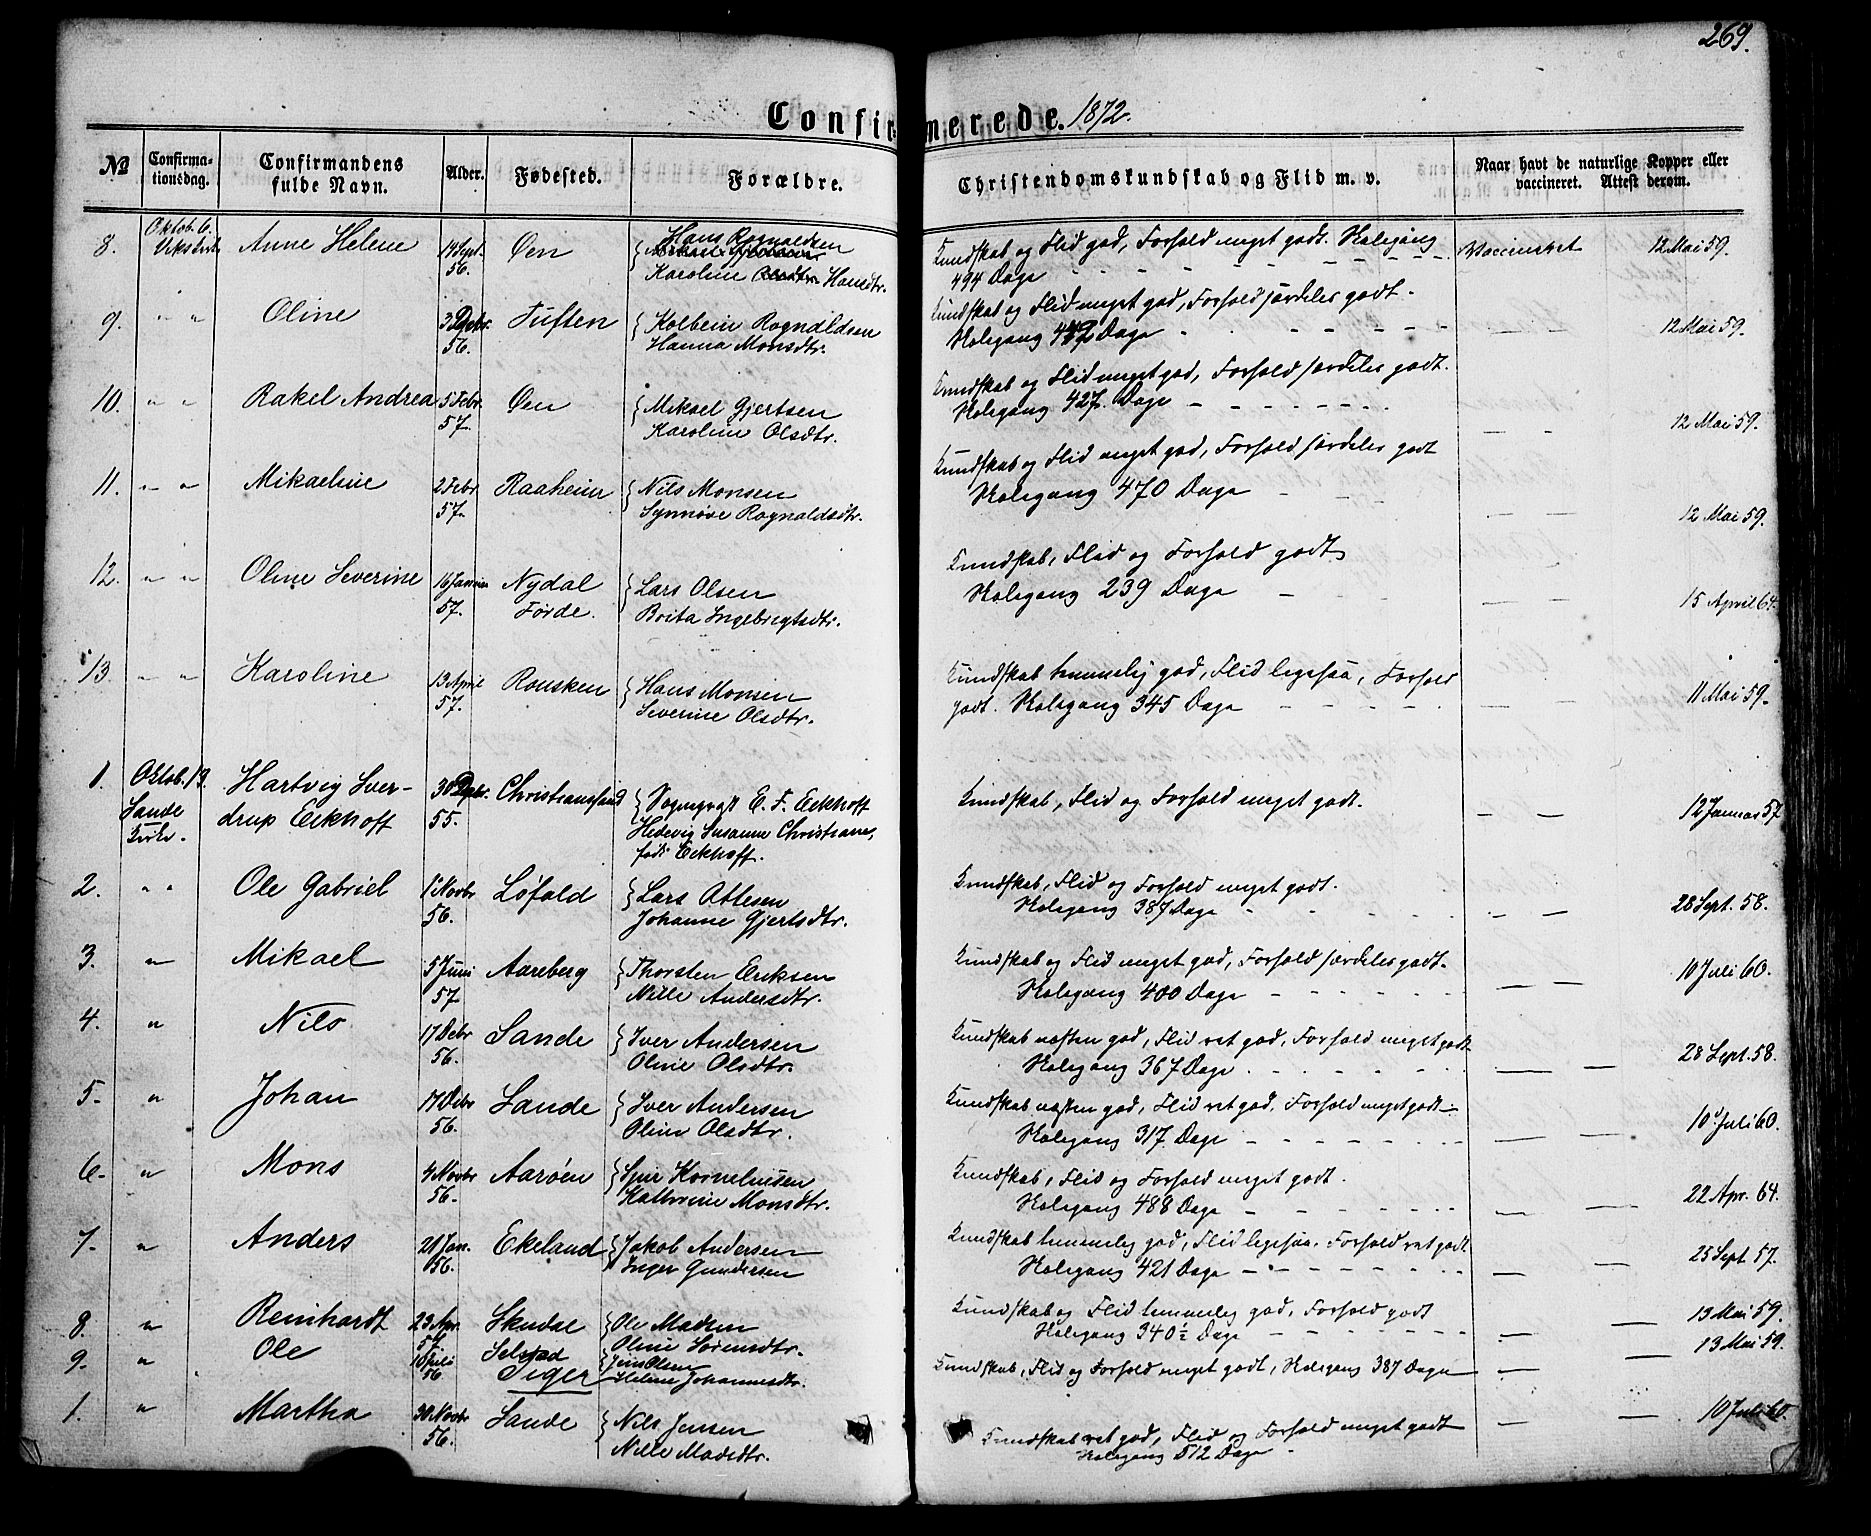 269.
Confirmerede. 1872.
№ Confirmationsdag. Confirmandens fulde Navn. Alder. Fødested. Forældre. Christendomskundskab og Flid m. v. Naar havt de naturlige Kopper eller vaccineret. Attest derom.
8. Oktob. 6. Anne Helene 14 Sept. 56. Øen Hans Rognaldsen
Karoline Hansdtr.
Kundskab og Flid god, Forhold meget godt. Skolegang
494 Dage - - - Vaccineret 12 Mai 59.
9. " " Oline 3 Debr. 56. Tuften Kolbein Rognaldsen
Hanna Monsdtr.
Kundskab og Flid meget god, Forhold særdeles godt.
Skolegang Dage - - - 12 Mai 59.
10. " " Rakel Andrea 5 Febr. 57. Øen Mikael Gjertsen
Karoline Olsdtr.
Kundskab og Flid meget god, Forhold særdeles godt.
Skolegang 427 Dage - - - 12 Mai 59.
11. " " Mikaeline 2 Febr 57. Raaheim Nils Monsen
Synnøve Rognaldsdtr.
Kundskab og Flid meget god, Forhold særdeles godt
Skolegang 470 Dage - - - 12 Mai 59.
12. " " Oline Severine 16 Januar 57. Nydal Førde. Lars Olsen
Brita Ingebrigtsdtr.
Kundskab, Flid og Forhold godt
Skolegang 239 Dage - - - 15 April 64.
13. " " Karoline 13 April 57. Rousken Hans Monsen
Severine Olsdtr.
Kundskab temmelig god, Flid ligesaa, Forhold
godt. Skolegang 345 Dage - - - 11 Mai 59.
1. Oktob. 13. Sande Kirke. Hartvig Sverdrup Eckhoff 30 55. Christianssand Sognepræst E. F. Eckhoff
Hedevig Susanne Christiane,
født Eckhoff.
Kundskab, Flid og Forhold meget godt. - - 12 Januar 57
2. " " Ole Gabriel 1 Novbr 56. Løfald Lars Attesen
Johanne Gjertsdtr.
Kundskab, Flid og Forhold meget godt.
Skolegang 387 Dage - - - 28 Sept. 58.
3. " Mikael 5 Juni 57 Aareberg Thorsten Eriksen
Nille Andersdtr.
Kundskab og Flid meget god, Forhold særdeles godt.
Skolegang 400 Dage - - - 10 Juli 60.
4. " Nils 17 Debr 56. Sande Iver Andersen
Oline Olsdtr.
Kundskab næsten god, Flid ret god, Forhold meget godt
Skolegang 367 Dage - - - 28 Sept. 58.
5. " Johan 17 Debr 56. Sande Iver Andersen
Oline Olsdtr.
Kundskab næsten god, Flid ret god, Forhold meget godt
Skolegang 317 Dage - - - 10 Juli 60.
6. " Mons 4 Novbr 56. Aarøen Kornelius­en
Kathrine Monsdtr.
Kundskab, Flid og Forhold meget godt.
Skolegang 488 Dage - - - 22 Apr. 64.
7. " Anders 21 Jan. 56. Ekeland Jakob Andersen
Inger Gundersen
Kundskab temmelig god, Flid ligesaa. Forhold ret godt.
Skolegang 421 Dage - - - 25 Sept 57.
8. " Reinhardt 23 Apr. 57 Skudal Ole Madsen
Oline Sørensdtr.
Kundskab og Flid temmelig god, Forhold godt
Skolegang 340½ Dage - - - 13 Mai 59.
9. " Ole 10 Juli 56 Jens Olsen
Helene Johannesdtr.
Kundskab, Flid og Forhold meget godt, Skolegang 387 Dage - - 13 Mai 59.
1. " Martha 30 Novbr 56. Sande Nils Jensen
Nille Madsdtr.
Kundskab ret god, Flid og Forhold meget godt
Skolegang 512 Dage - - - 10 Juli 60.